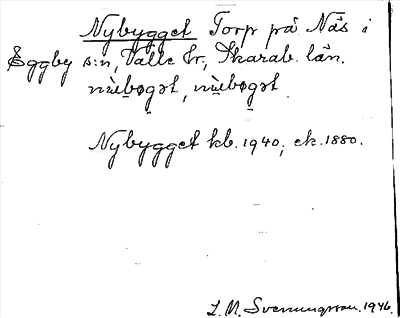 Nybygget Torp på Näs i
Eggby s:n, Valle Hr., Skarab. län.
Nybygget kb. 1940, ek. 1880.
L. M. Svenungsson. 1946.